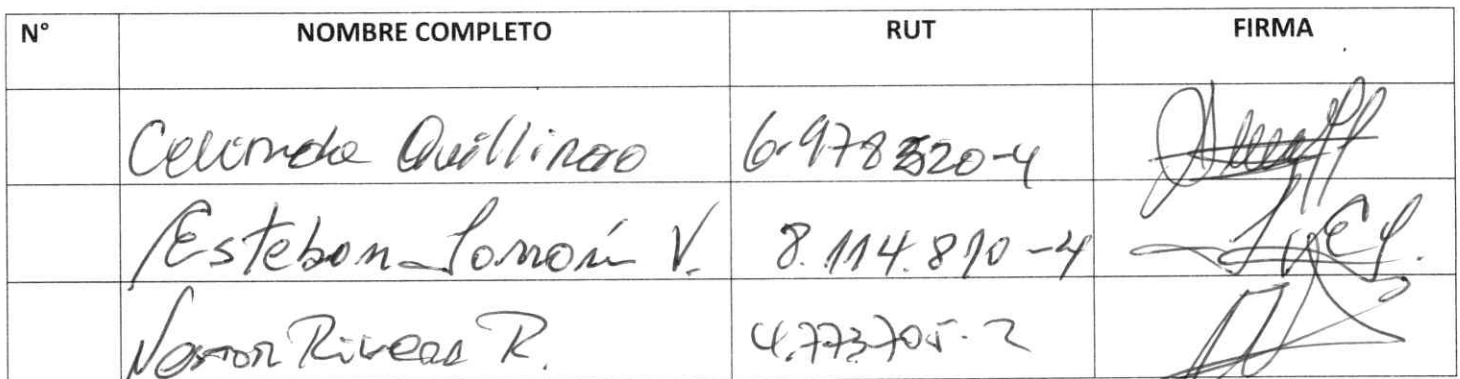 N° NOMBRE COMPLETO RUT FIRMA
Quillinao 6.978320-4
Esteban V. 8.114.810-4
Nestor Rivera R. 4.773705-2